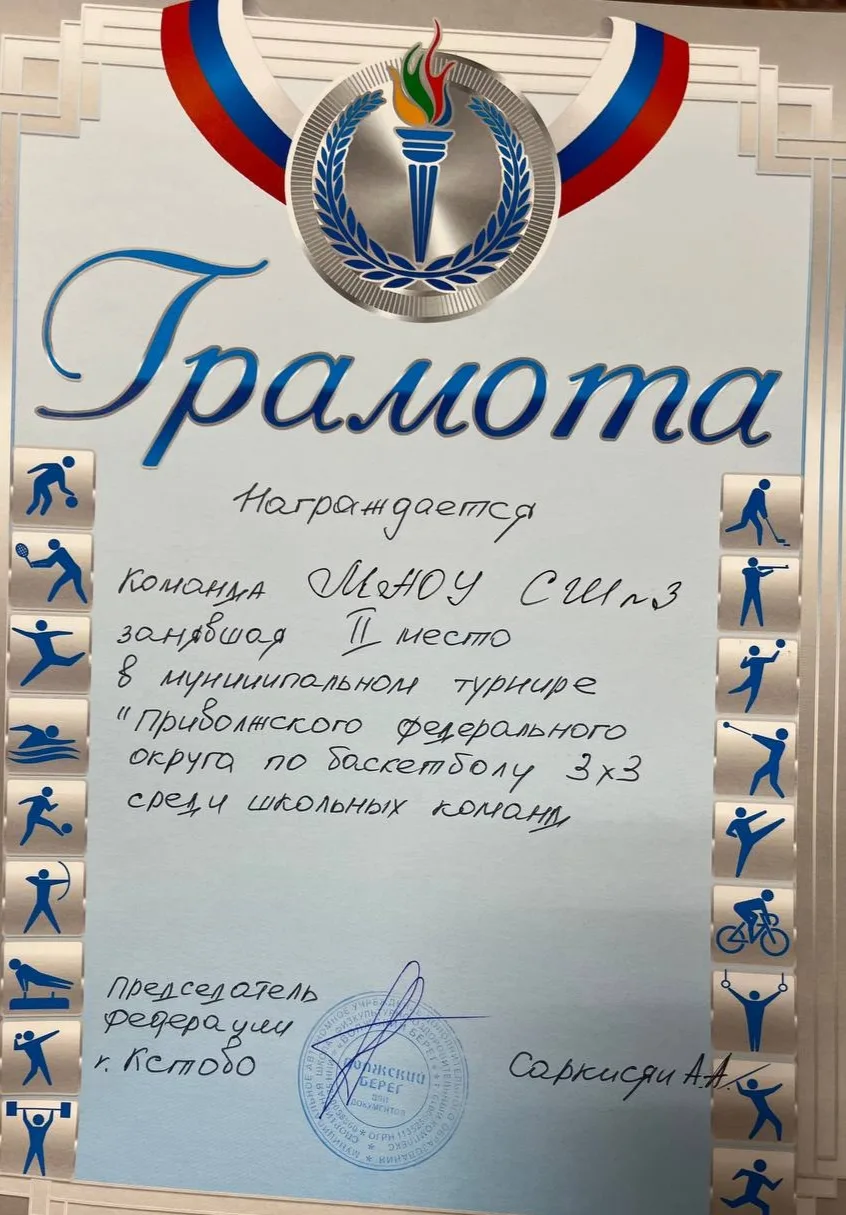 Грамота
Награждается
команда МАОУ СШ №3
занявшая II место
в муниципальном турнире
"Приволжского федерального
округа по баскетболу 3х3
среди школьных команд
Председатель
Федерации
г. Кстово
Саркисян А.А.
Волжский
БЕРЕГ
ДЛЯ
ДОКУМЕНТОВ